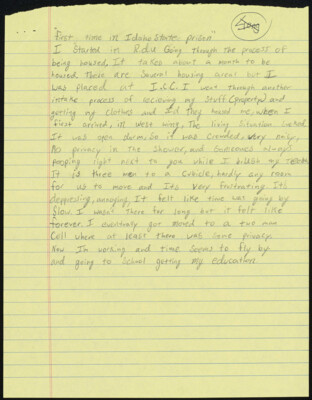 "First time in Idaho State prison"
I Started in Rdu Going Through the process of
being housed, It takes about a month to be
housed. There are Several housing areas but I
was placed at I.S.C. I went through another
intake process of recieving my Stuff (property) and
getting my clothes and Id they housed me when I
first arrived, in west wing. The living Situation Sucked
It was open dorms. So it was Crowded, very only,
No privacy in the Shower, and Someones always
pooping right next to you while I brush my teeth.
It is three men to a Cubicle, hardly any room
for us to move and Its very frustrating. It's
depressing, annoying, It felt like time was going by
Slow. I wasn't There for long but it felt like
forever. I eventualy got moved to a two man
Cell where at least there was some privacy.
Now Im working and time Seems to fly by.
and going to School getting my education